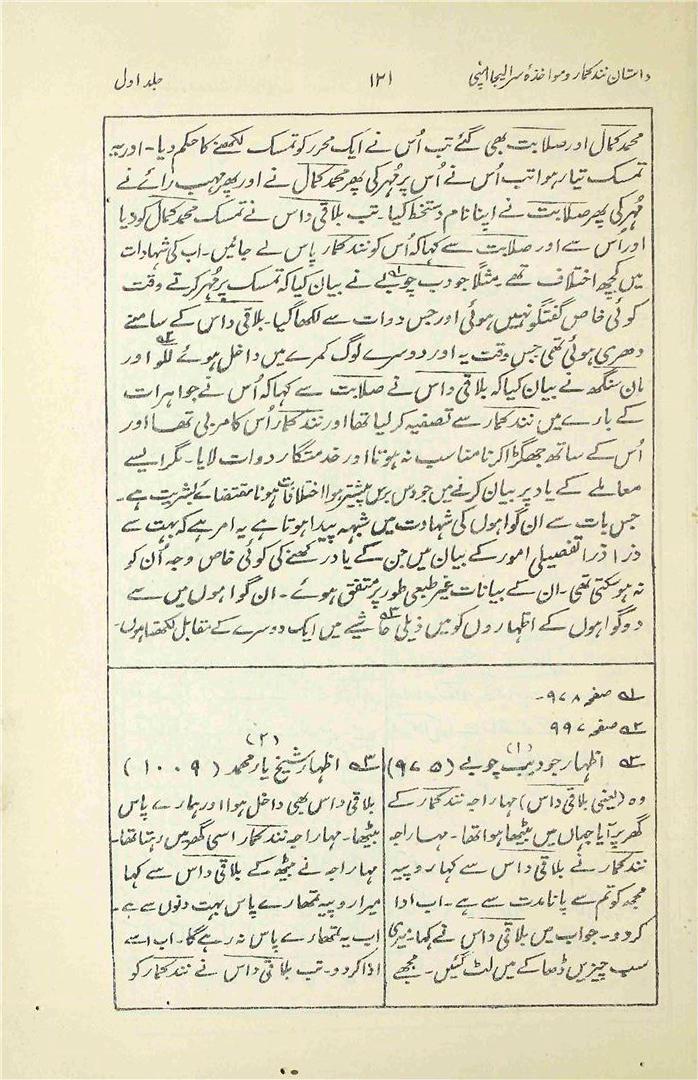 داستان نند کمار و مواخذهٔ سر ایلیجا امپی ۱۲۱ جلد اول
محمد کمال اور صلابت بھی گئے تب اُس نے ایک محرر کو تمسک لکھنے کا حکم دیا۔ اور یہ
تمسک تیار ہوا تب اُس نے اُس پر مُہر کی پھر محمد کمال نے اور پھر مہب رائے نے
مُہر کی پھر صلابت نے اپنا نام دستخط کیا۔ تب بلاقی داس نے تمسک محمد کمال کو دیا
اور اُس سے اور صلابت سے کہا کہ اُس کو نند کمار پاس لے جائیں۔ اب کی شہادات
میں کچھ اختلاف تھے مثلًا جودب چوبے نے بیان کیا کہ تمسک پر مُہر کرتے وقت
کوئی خاص گفتگو نہیں ہوئی اور جس دوات سے لکھا گیا۔ بلاقی داس کے سامنے
دھری ہوئی تھی جس وقت یہ اور دوسرے لوگ کمرے میں داخل ہوئے للّو اور
مان سنگھ نے بیان کیا کہ بلاقی داس نے صلابت سے کہا کہ اُس نے جواہرات
کے بارے میں نند کمار سے تصفیہ کر لیا تھا اور نند کمار اُس کا مربی تھا اور
اُس کے ساتھ جھگڑا کرنا مناسب نہ ہوتا اور خدمتگار دوات لایا۔ مگر ایسے
معاملے کے یاد پر بیان کرنے میں جو دس برس پیشتر ہوا اختلافات ہونا مقتضائے بشریت ہے۔
جس بات سے ان گواہوں کی شہادت میں شبہہ پیدا ہوتا ہے یہ امر ہے کہ بہت سے
ذرا ذرا تفصیلی امور کے بیان میں جن کے یاد رکھنے کی کوئی خاص وجہ اُن کو
نہ ہو سکتی تھی۔ ان کے بیانات غیر طبعی طور پر متفق ہوئے۔ ان گواہوں میں سے
دو گواہوں کے اظہاروں کو میں ذیلی حاشیے میں ایک دوسرے کے مقابل لکھتا ہوں۔
۱؎ صفحہ ۹۷۸۔
۲؎ صفحہ ۹۹۷
(۱)
۳؎ اظہار جودیب چوبے (۹۷۵)
وہ (یعنی بلاقی داس) مہاراجہ نند کمار کے
گھر پر آیا جہاں میں بیٹھا ہوا تھا۔ مہاراجہ
نند کمار نے بلاقی داس سے کہا روپیہ
مجھ کو تم سے پانا مدت سے ہے۔ اب ادا
کردو۔ جواب میں بلاقی داس نے کہا۔ میری
سب چیزیں ڈھاکے میں لٹ گئیں۔ مجھے
(۲)
۳؎ اظہار شیخ یار محمد (۱۰۰۹)
بلاقی داس بھی داخل ہوا اور ہمارے پاس
بیٹھا۔ مہاراجہ نند کمار اسی گھر میں رہتا تھا۔
مہاراجہ نے بیٹھ کے بلاقی داس سے کہا
میرا روپیہ تمھارے پاس بہت دنوں سے ہے۔
اب یہ تمھارے پاس نہ رہے گا۔ اب اسے
ادا کردو۔ تب بلاقی داس نے نند کمار کو